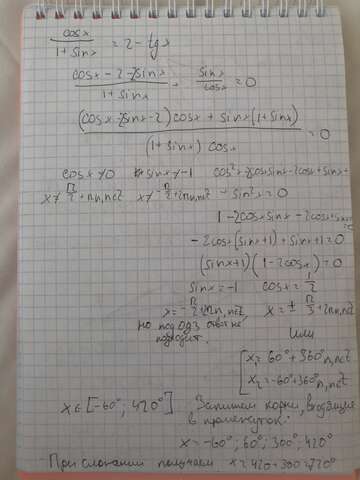 cosx / (1 + sinx) = 2 - tgx
(cosx - 2 - 2sinx) / (1 + sinx) + sinx / cosx = 0
((cosx - 2sinx - 2) cosx + sinx (1 + sinx)) / ((1 + sinx) cosx) = 0
cosx ≠ 0 sinx ≠ -1 cos²x - 2cosxsinx - 2cosx + sinx +
x ≠ π/2 + πn, n∈Z x ≠ -π/2 + 2πn, n∈Z + sin²x = 0
1 - 2cosxsinx - 2cosx + sinx = 0
- 2cosx (sinx + 1) + sinx + 1 = 0
(sinx + 1) (1 - 2cosx) = 0
sinx = -1 cosx = 1/2
x = -π/2 + 2πn, n∈Z x = ± π/3 + 2πn, n∈Z
но под ОДЗ ответ не
подходит. или
x₁ = 60° + 360°n, n∈Z
x₂ = -60° + 360°n, n∈Z
x ∈ [-60°; 420°] Запишем корни, входящие
в промежуток:
x = -60°; 60°; 300°; 420°
При сложении получаем x = 420 + 300 = 720°